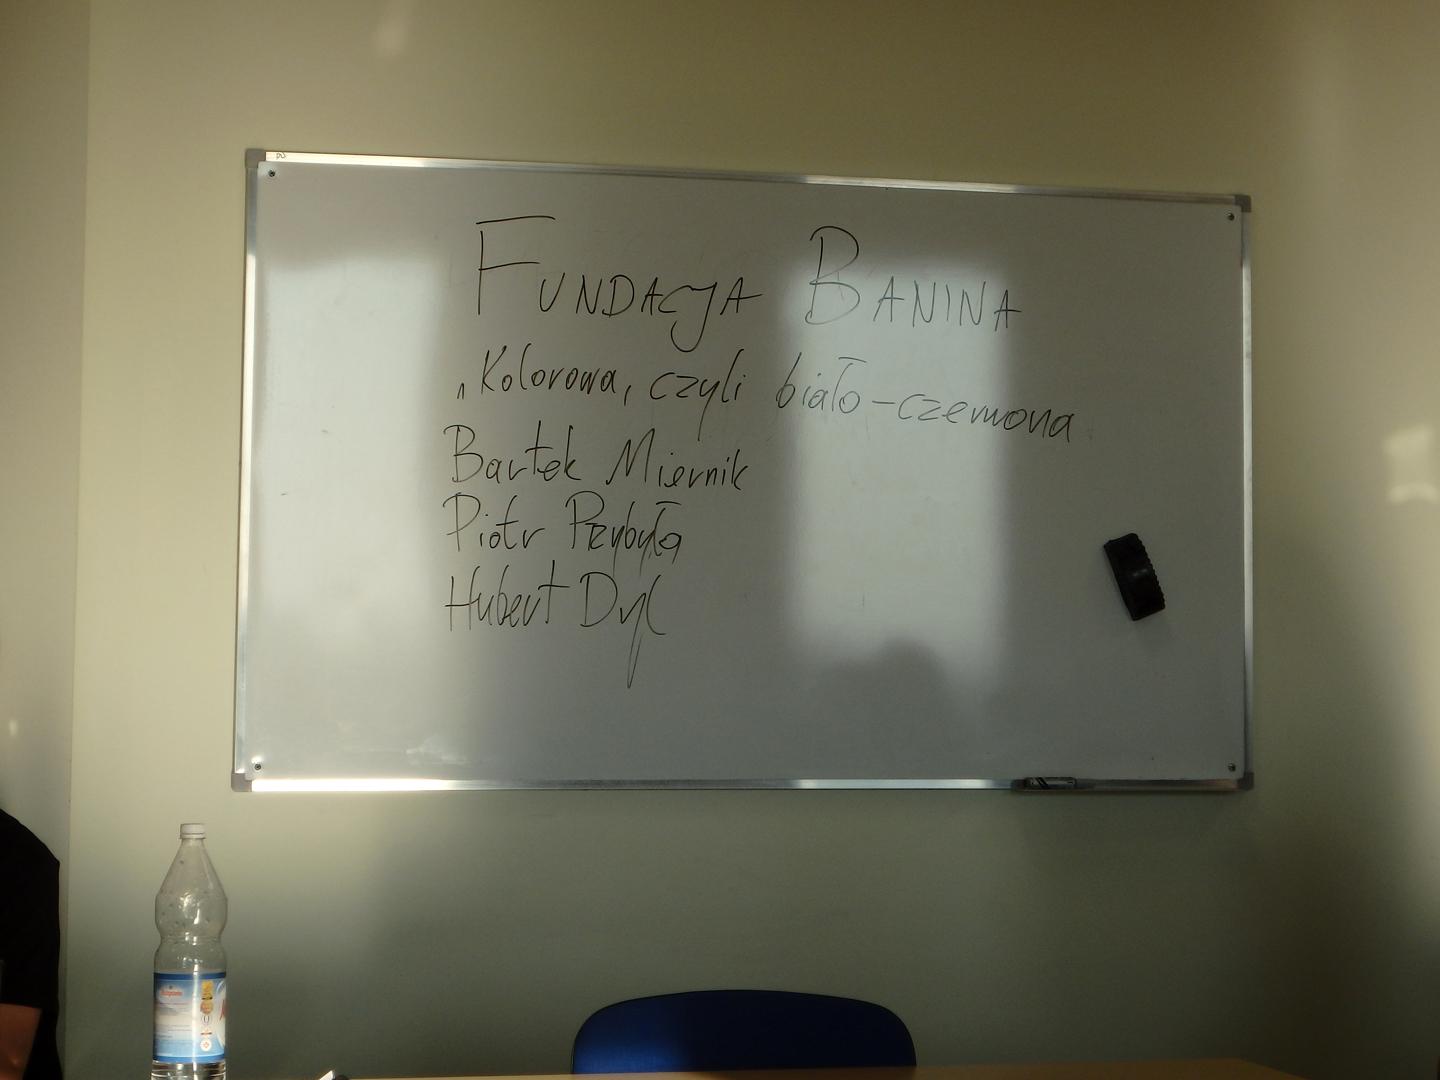 FUNDACJA BANINA
„Kolorowa, czyli biało-czerwona
Bartek Miernik
Piotr Przybyła
Hubert Dyl